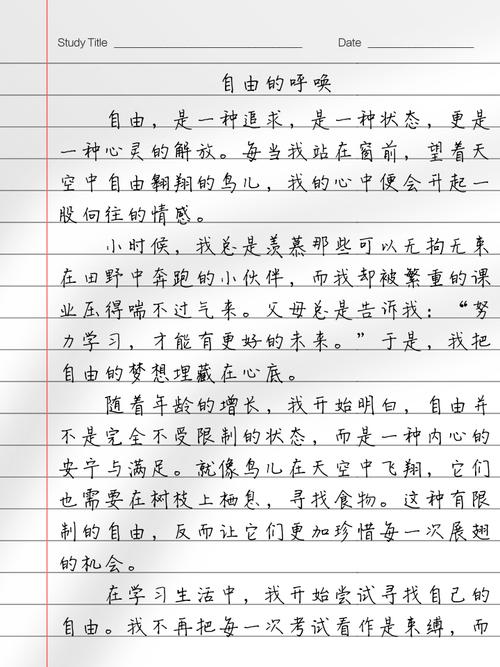 Study Title
Date
自由的呼唤
自由，是一种追求，是一种状态，更是
一种心灵的解放。每当我站在窗前，望着天
空中自由翱翔的鸟儿，我的心中便会升起一
股向往的情感。
小时候，我总是羡慕那些可以无拘无束
在田野中奔跑的小伙伴，而我却被繁重的课
业压得喘不过气来。父母总是告诉我：“努
力学习，才能有更好的未来。”于是，我把
自由的梦想埋藏在心底。
随着年龄的增长，我开始明白，自由并
不是完全不受限制的状态，而是一种内心的
安宁与满足。就像鸟儿在天空中飞翔，它们
也需要在树枝上栖息，寻找食物。这种有限
制的自由，反而让它们更加珍惜每一次展翅
的机会。
在学习生活中，我开始尝试寻找自己的
自由。我不再把每一次考试看作是束缚，而